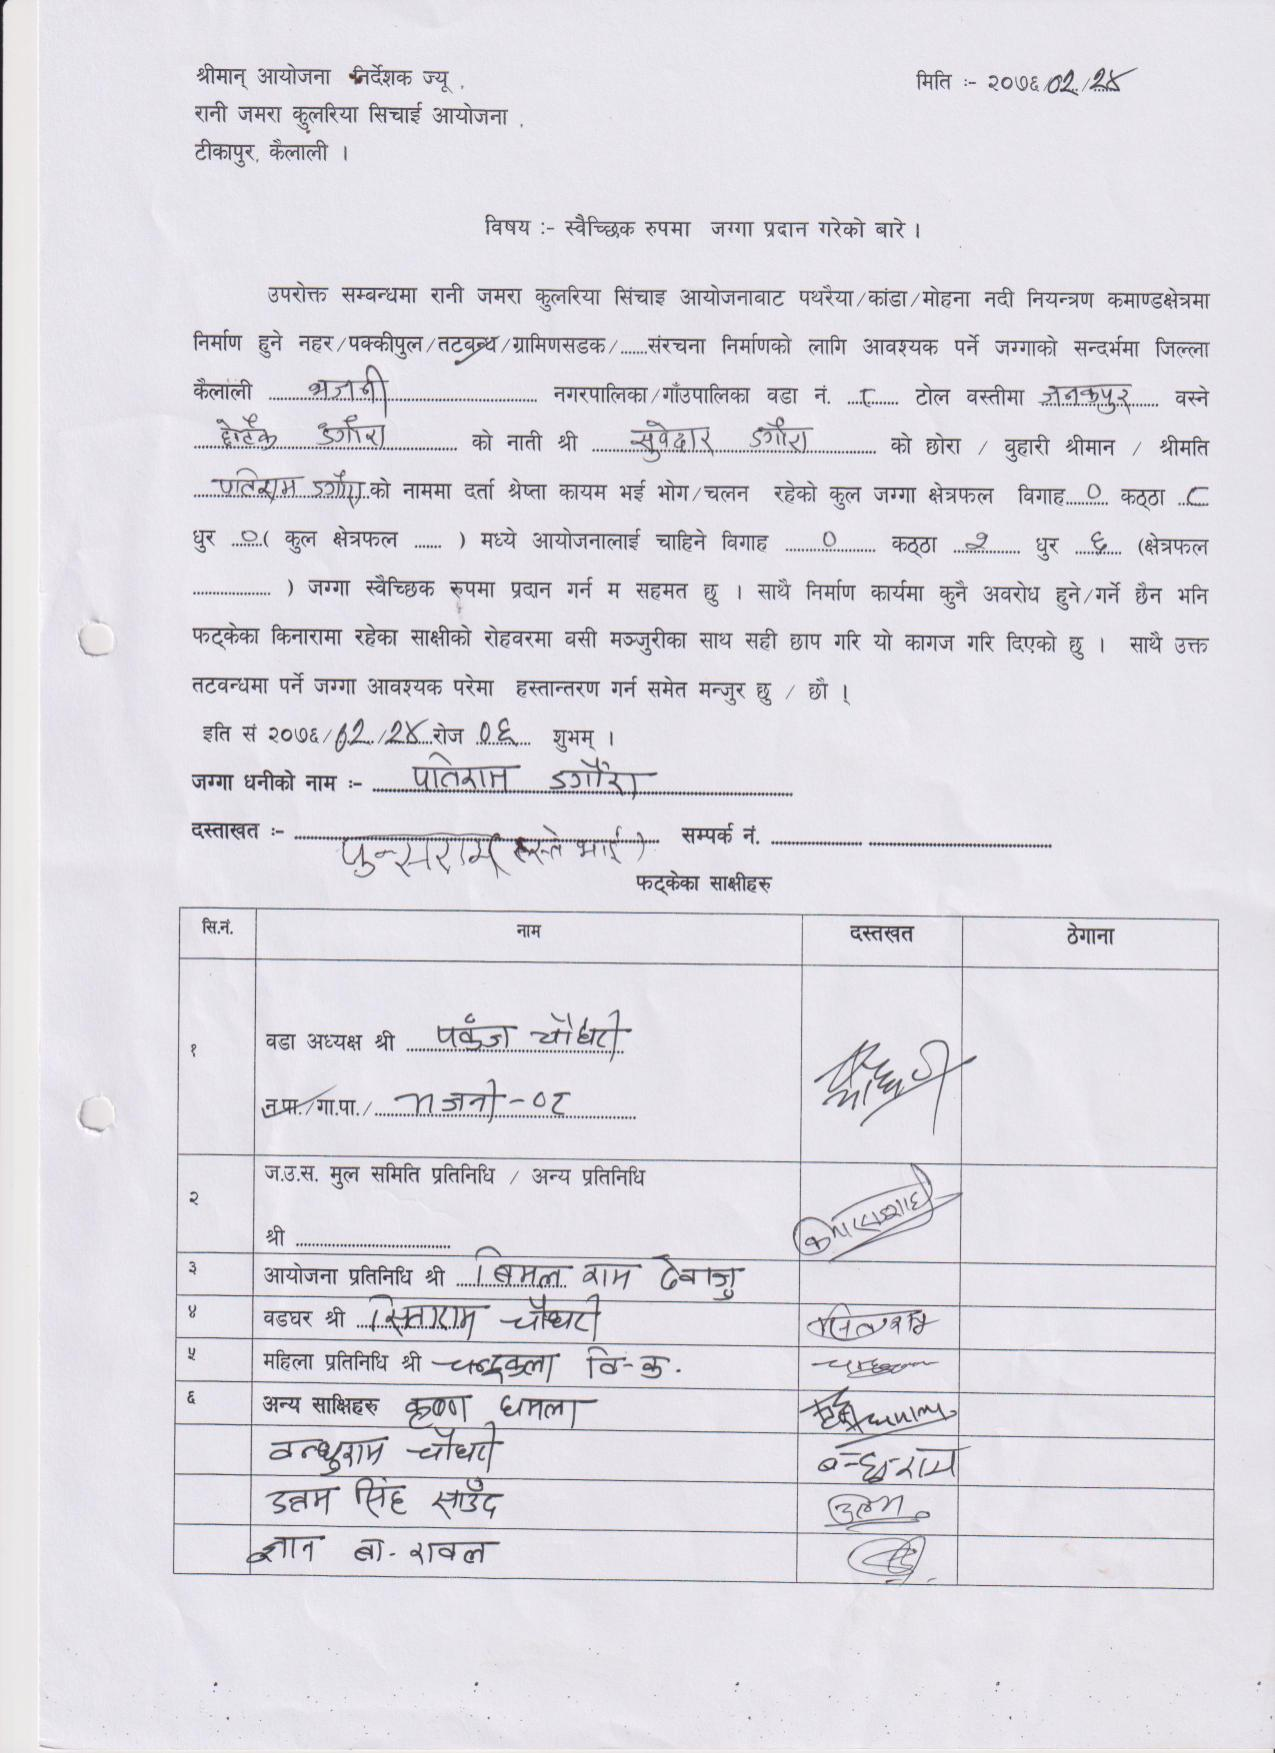 श्रीमान् आयोजना निर्देशक ज्यू ,
मिति :- २०७६/०२/२४
रानी जमरा कुलरिया सिचाई आयोजना ,
टीकापुर, कैलाली ।
विषय :- स्वैच्छिक रुपमा जग्गा प्रदान गरेको बारे ।
उपरोक्त सम्बन्धमा रानी जमरा कुलरिया सिंचाइ आयोजनावाट पथरैया/कांडा/मोहना नदी नियन्त्रण कमाण्डक्षेत्रमा
निर्माण हुने नहर/पक्कीपुल/तटबन्ध/ग्रामिणसडक/.......संरचना निर्माणको लागि आवश्यक पर्ने जग्गाको सन्दर्भमा जिल्ला
कैलाली भजनी नगरपालिका/गाँउपालिका वडा नं. ८ टोल वस्तीमा जनकपुर वस्ने
डगौरा को नाती श्री सुवेदार डगौरा को छोरा / वुहारी श्रीमान / श्रीमति
पतिराम डगौरा को नाममा दर्ता श्रेष्ता कायम भई भोग/चलन रहेको कुल जग्गा क्षेत्रफल विगाह ० कठ्ठा ८
धुर ० ( कुल क्षेत्रफल ...... ) मध्ये आयोजनालाई चाहिने विगाह ० कठ्ठा २ धुर ६ (क्षेत्रफल
................... ) जग्गा स्वैच्छिक रुपमा प्रदान गर्न म सहमत छु । साथै निर्माण कार्यमा कुनै अवरोध हुने/गर्ने छैन भनि
फट्केका किनारामा रहेका साक्षीको रोहवरमा वसी मञ्जुरीका साथ सही छाप गरि यो कागज गरि दिएको छु । साथै उक्त
तटवन्धमा पर्ने जग्गा आवश्यक परेमा हस्तान्तरण गर्न समेत मन्जुर छु / छौ ।
इति सं २०७६/०२/२४ रोज ०६ शुभम् ।
जग्गा धनीको नाम :- पतिराम डगौरा
दस्ताखत :- सम्पर्क नं.
फुन्सराम भाई)
फट्केका साक्षीहरु
सि.नं. नाम दस्तखत ठेगाना
१ वडा अध्यक्ष श्री पकंज चौधरी
न.पा./गा.पा./ भजनी-०८
२ ज.उ.स. मुल समिति प्रतिनिधि / अन्य प्रतिनिधि
श्री ......................................
३ आयोजना प्रतिनिधि श्री बिमल राम देवाजु
४ वडघर श्री सिताराम चौधरी सिताराम
५ महिला प्रतिनिधि श्री चन्द्रकला वि.क.
६ अन्य साक्षिहरु कृष्ण धमला
वन्धुराम चौधरी बन्धुराम
उत्तम सिंह साउँद उत्तम
ज्ञान बा. रावल